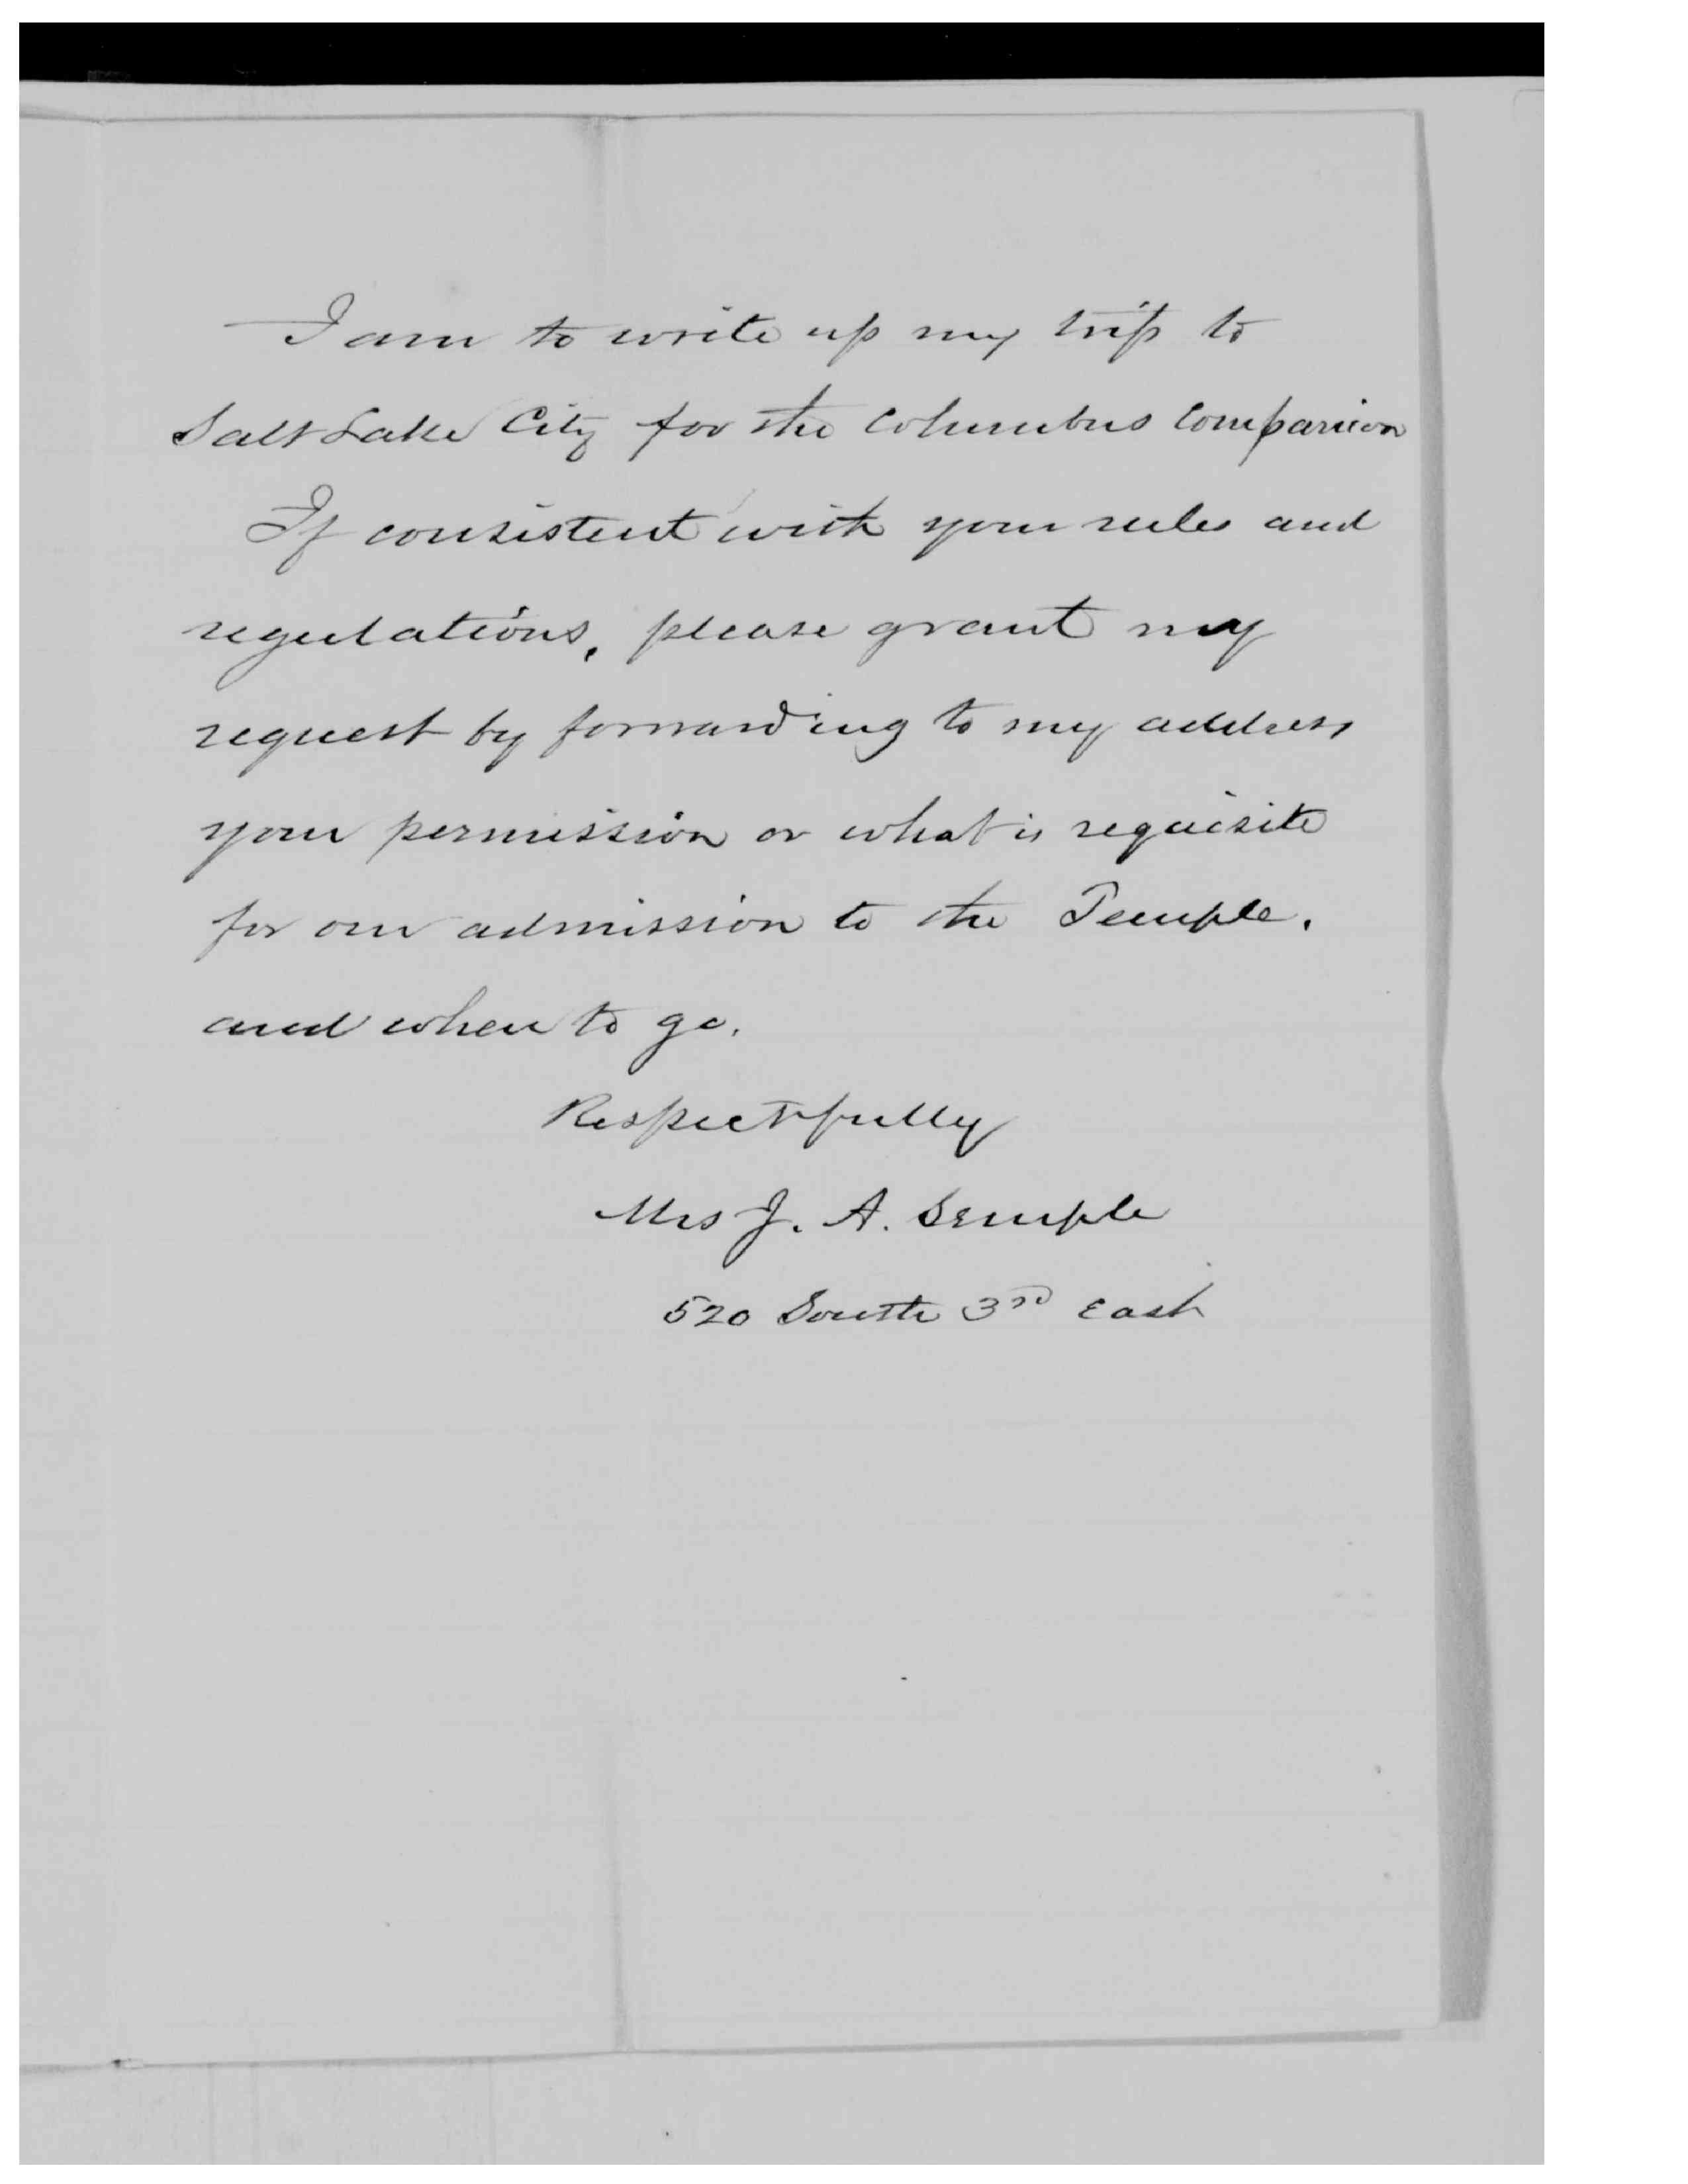 I am to write up my trip to
Salt Lake City for the Columbus Companion
If consistent with your rules and
regulations, please grant my
request by forwarding to my address
your permission or what is requisite
for our admission to the Temple.
and when to go.
Respectfully
Mrs J. A. Semple
520 South 3rd East